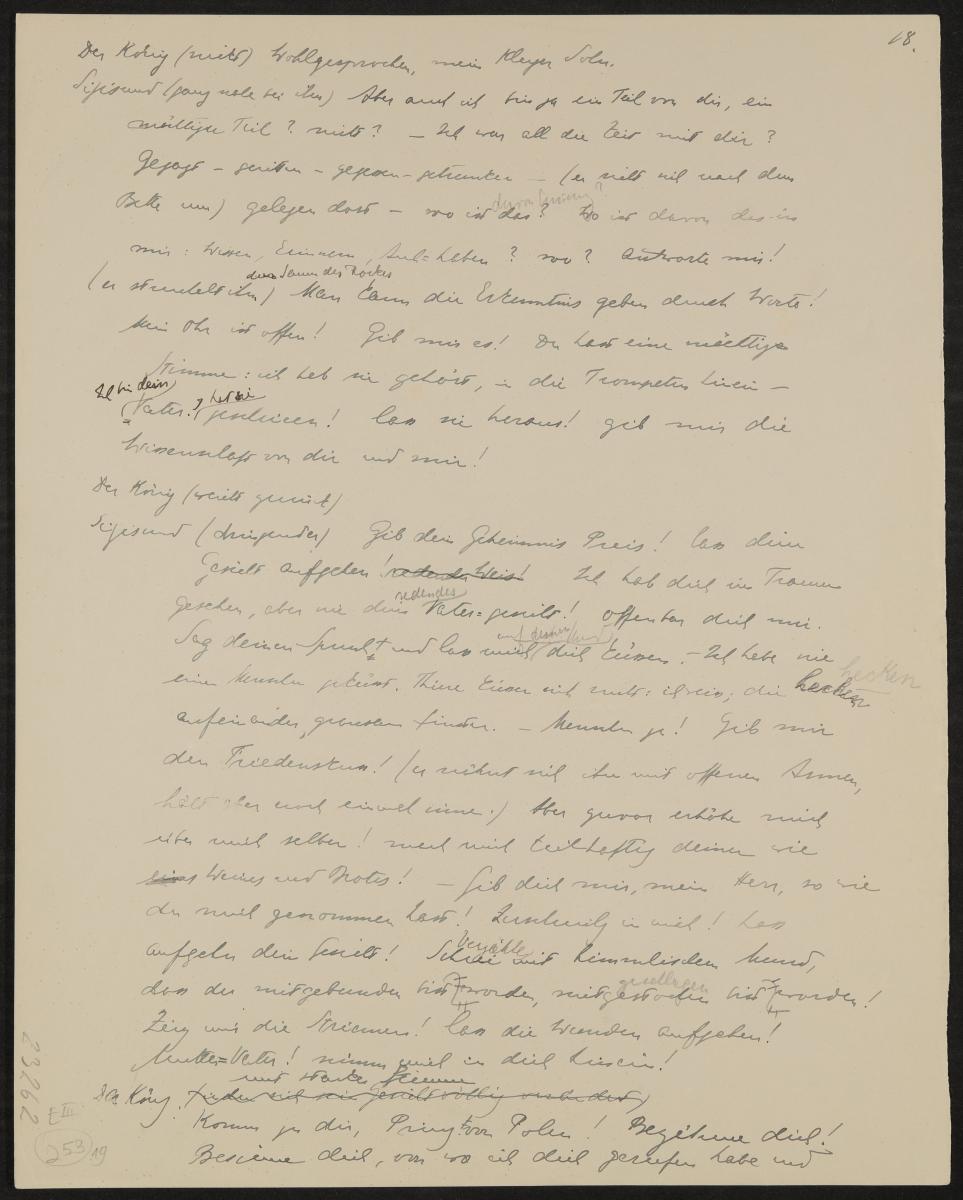 18.
Der König (nickt) Wohlgesprochen, mein kluger Sohn.
Sigismund (ganz nahe bei ihm) Aber auch ich bin ja ein Teil von dir, ein
mächtiger Teil? nicht? – Ich war all die Zeit mit dir?
Gejagt – geritten – gegessen – getrunken – (er sieht sich nach dem
davon
Bette um) gelegen dort – wo ist das? Wo ist davon das in
mir: Wissen, Erinnern, Lieb-haben? wo? Antworte mir!
den Saum des Rockes
(er streichelt ihm) Man kann die Erkenntnis geben durch Worte!
Mein Ohr ist offen! Gib mir es! Du hast eine mächtige
Stimme: ich hab sie gehört, in die Trompeten hinein –
Ich bin dein
Vater! hat sie geschrieen! lass sie heraus! gib mir die
Wissenschaft von dir und mir!
Der König (weicht zurück)
Sigismund (dringender) Gib dein Geheimnis Preis! lass dein
Gesicht aufgehen! redender Weis! Ich hab dich im Traum
redendes
gesehen, aber nie dein Vater=gesicht! offenbar dich mir.
und
Sag deinen Spruch und lass mich dich küssen. – Ich habe nie
hecken
einen Menschen geküsst. Thiere küssen sich nicht: ich weiss; die hecken
aufeinander, grausam finster. – Menschen ja! Gib mir
den Friedenskuss! (er nähert sich ihm mit offenen Armen,
hält aber noch einmal inne.) Aber zuvor erhöhe mich
über mich selber! mach mich teilhaftig deiner wie
eines Weines und Brotes! – Gib dich mir, mein Herr, so wie
du mich genommen hast! in mich! lass
aufgehn dein Gesicht! mit himmlischem Mund,
geschlagen
dass du mitgebunden bist worden, mitgestochen bist worden!
Zeig mir die Striemen! lass die Wunden aufgehen!
Mutter=Vater! nimm mich in dich hinein!
mit starker Stimme
Der König.
Komm zu dir, Prinz von Polen! Bezähme dich!
Besinne dich, von wo ich dich gerufen habe und
23262
E III
253
19